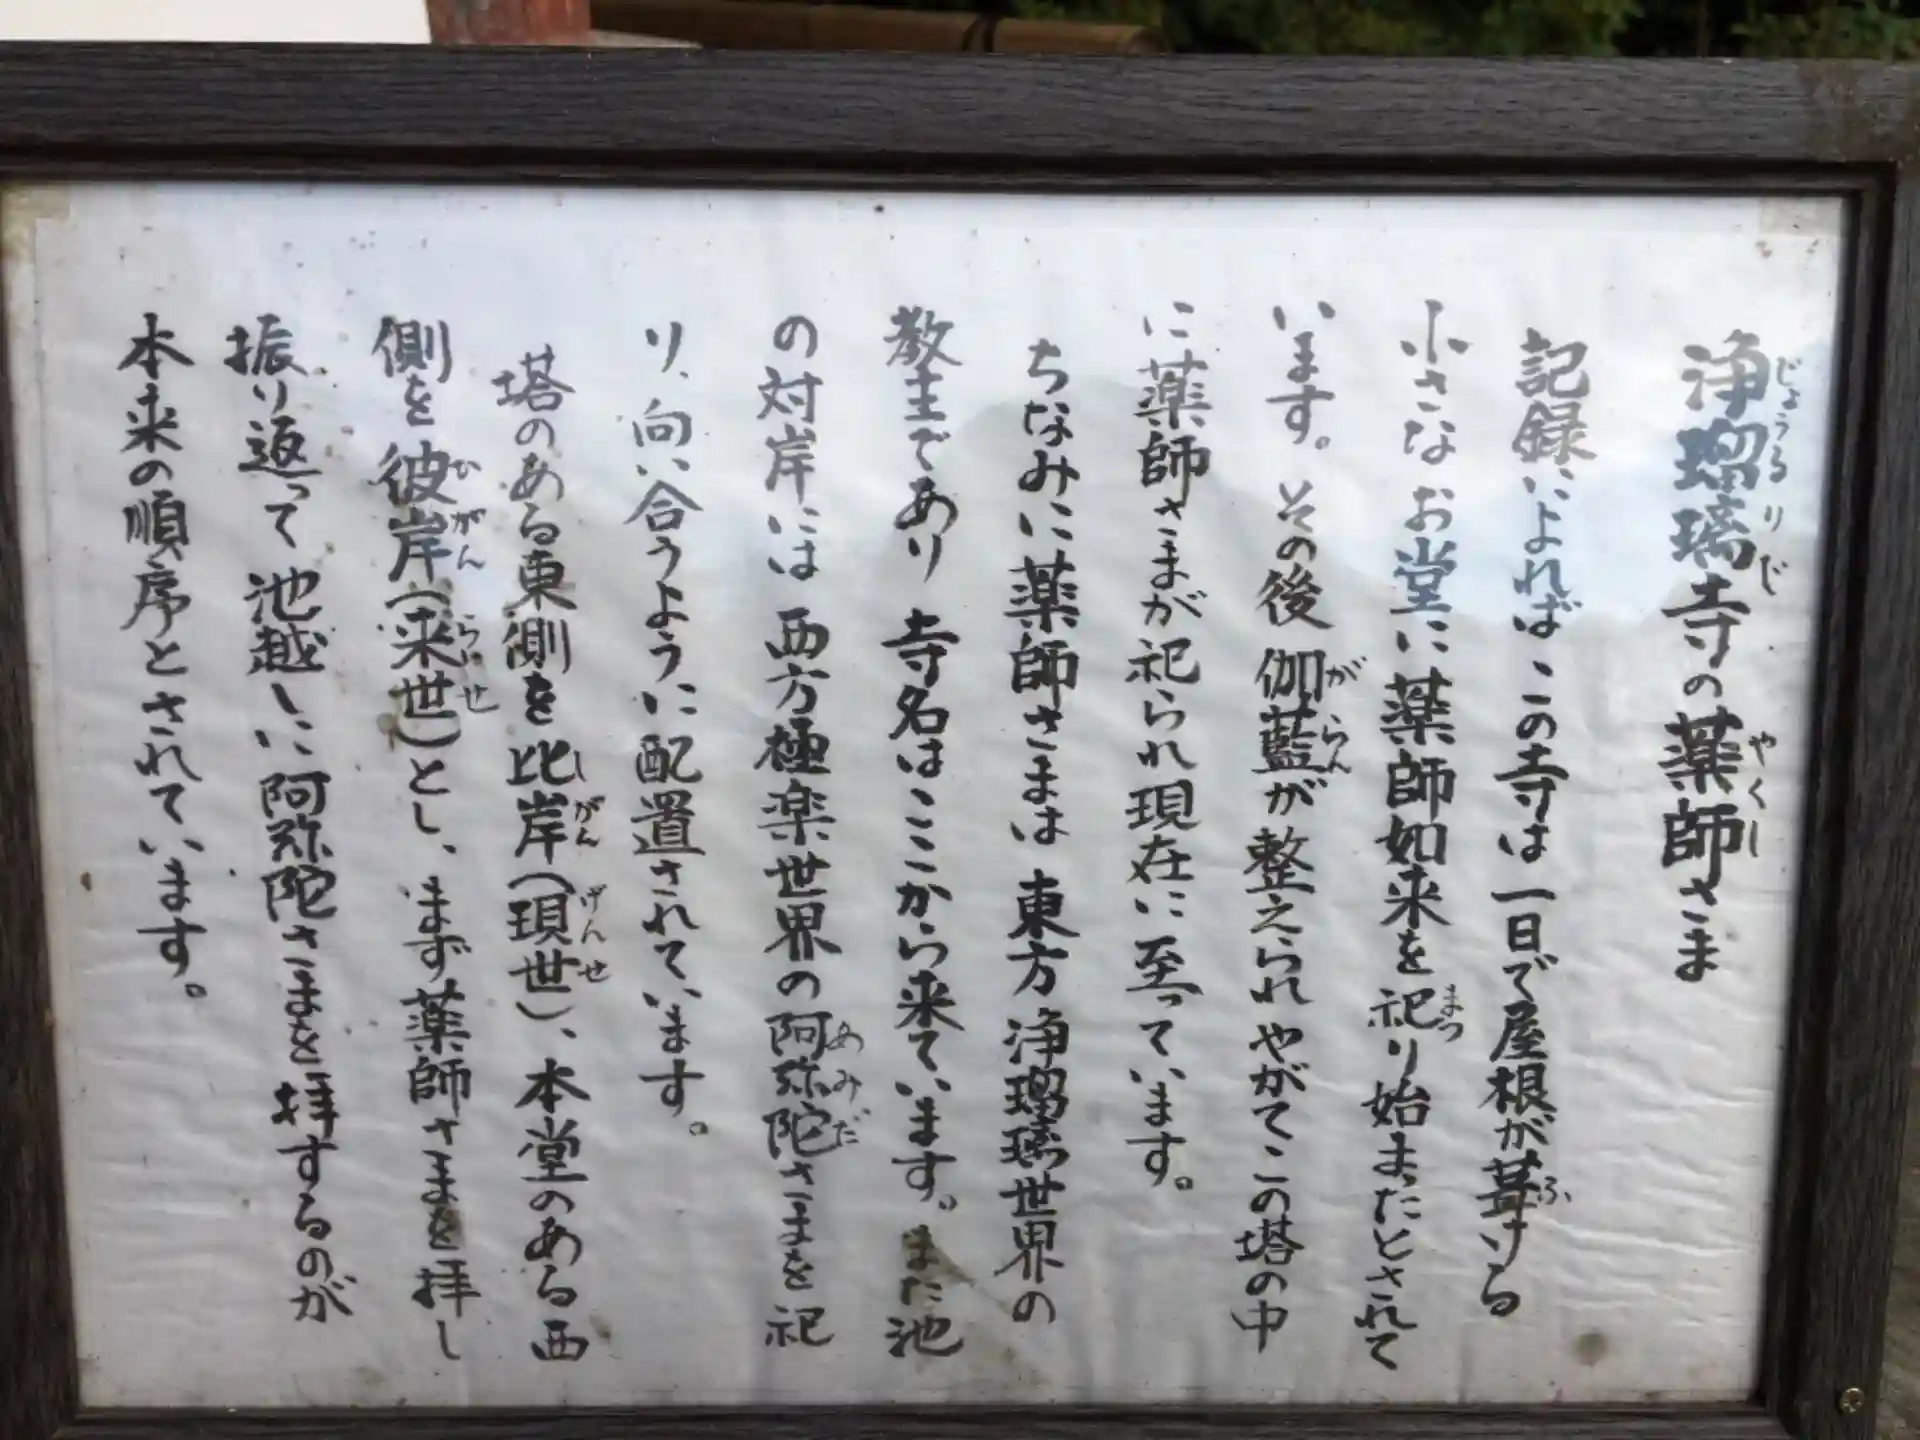 浄瑠璃寺の薬師さま
記録によればこの寺は一日で屋根が葺ける
小さなお堂に薬師如来を祀り始まったとされて
います。その後伽藍が整えられやがてこの塔の中
に薬師さまが祀られ現在に至っています。
ちなみに薬師さまは東方浄瑠璃世界の
教主であり寺名はここから来ています。また池
の対岸には西方極楽世界の阿弥陀さまを祀
り、向い合うように配置されています。
塔のある東側を此岸(現世)、本堂のある西
側を彼岸(来世)とし、まず薬師さまを拝し
振り返って池越しに阿弥陀さまを拝するのが
本来の順序とされています。